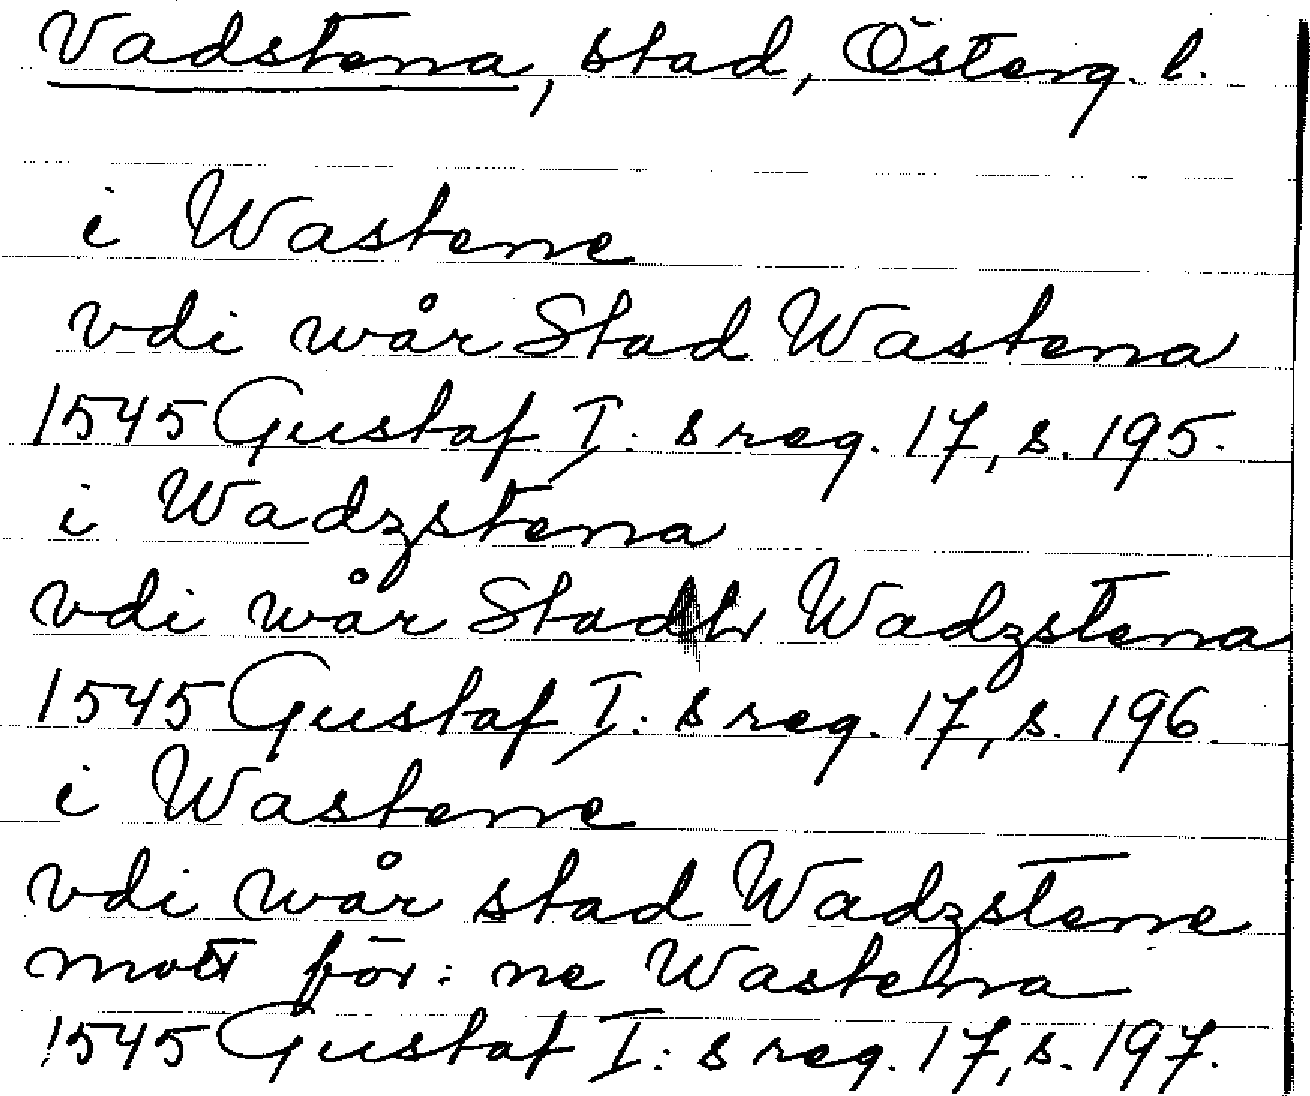 Vadstena, stad, Österg. l.
i Wastene
vdi wår Stad Wastena
1545 Gustaf I: s reg. 17, s. 195.
i Wadzstena
vdi wår Wadzstena
1545 Gustaf I: s reg. 17, s. 196.
i Wastene
vdi wår stad Wadzstene
mott för: ne Wastena
1545 Gustaf I: s reg. 17, s. 197.